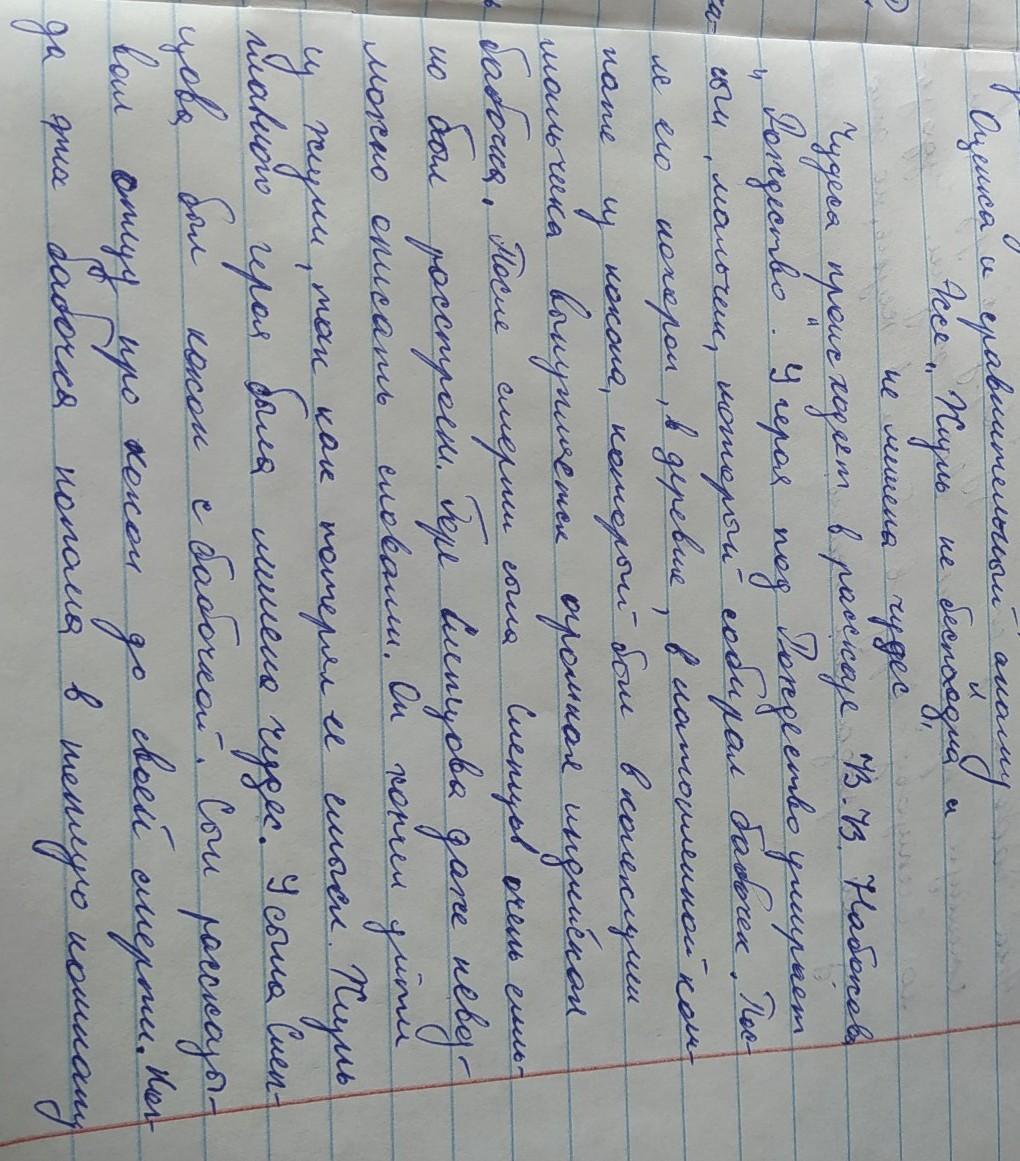 Оценка и сравнительный анализ
Эссе „Жизнь не беспощадна и
не лишена чудес"
Чудеса происходят в рассказе В.В. Набокова
„Рождество". У героя под Рождество умирает
сын, мальчик, который собирал бабочек. Пос-
ле его похорон, в деревне, в натопленной ком-
нате из кокона, который был в колекции
мальчика вылупляется огромная индийская
бабочка. После смерти сына Слепцов очень силь-
но был расстроен. Горе Слепцова даже невоз-
можно описать словами. Он хочет уйти
из жизни, так как потерял ее смысл. Жизнь
главного героя была лишена чудес. У сына Слеп-
цова был кокон с бабочкой. Сын рассказы-
вал отцу про кокон до своей смерти. Ког-
да эта бабочка попала в теплую комнату